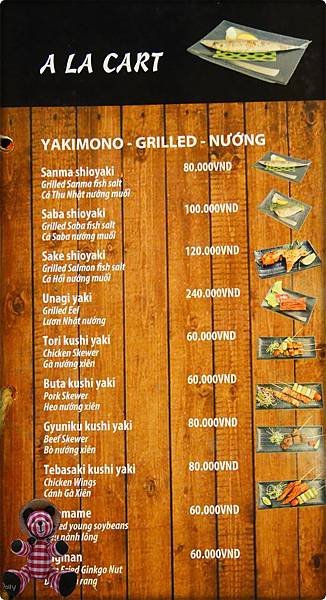 A LA CART
YAKIMONO - GRILLED - NƯỚNG
Sanma shioyaki 80.000VND
Grilled Sanma fish salt
Cá Thu Nhật nướng muối
Saba shioyaki 100.000VND
Grilled Saba fish salt
Cá Saba nướng muối
Sake shioyaki 120.000VND
Grilled Salmon fish salt
Cá Hồi nướng muối
Unagi yaki 240.000VND
Grilled Eel
Lươn Nhật nướng
Tori kushi yaki 60.000VND
Chicken Skewer
Gà nướng xiên
Buta kushi yaki 60.000VND
Pork Skewer
Heo nướng xiên
Gyuniku kushi yaki 80.000VND
Beef Skewer
Bò nướng xiên
Tebasaki kushi yaki 80.000VND
Chicken Wings
Cánh Gà Xiên
60.000VND
young soybeans
nành lông
60.000VND
Fried Ginkgo Nut
rang